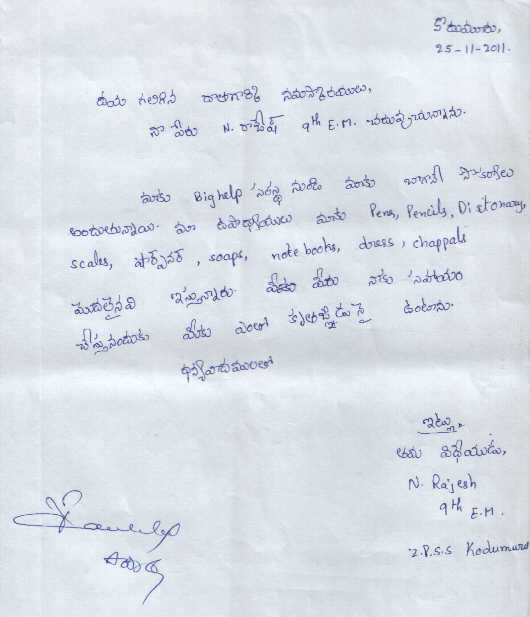 కొడుమూరు,
25-11-2011.
దయ గలిగిన దాతగారికి నమస్కారములు,
నా పేరు N. రాజేష్ 9th E.M. చదువుచున్నాను.
మాకు Bighelp సంస్థ నుండి మాకు బాగానే సౌకర్యాలు
అందుతున్నాయి. మా ఉపాధ్యాయులు మాకు Pens, Pencils, Dictonary,
scales, షార్ప్‌నర్, soaps, note books, dress, chappals
మొదలైనవి ఇస్తున్నారు. మీరు నాకు సహాయం
చేస్తున్నందుకు మీకు ఎంతో కృతజ్ఞుడునై ఉంటాను.
ధన్యవాదములతో
ఇట్లు,
తమ విధేయుడు,
N. Rajesh
9th E.M.
Z.P.S.S Kodumuru